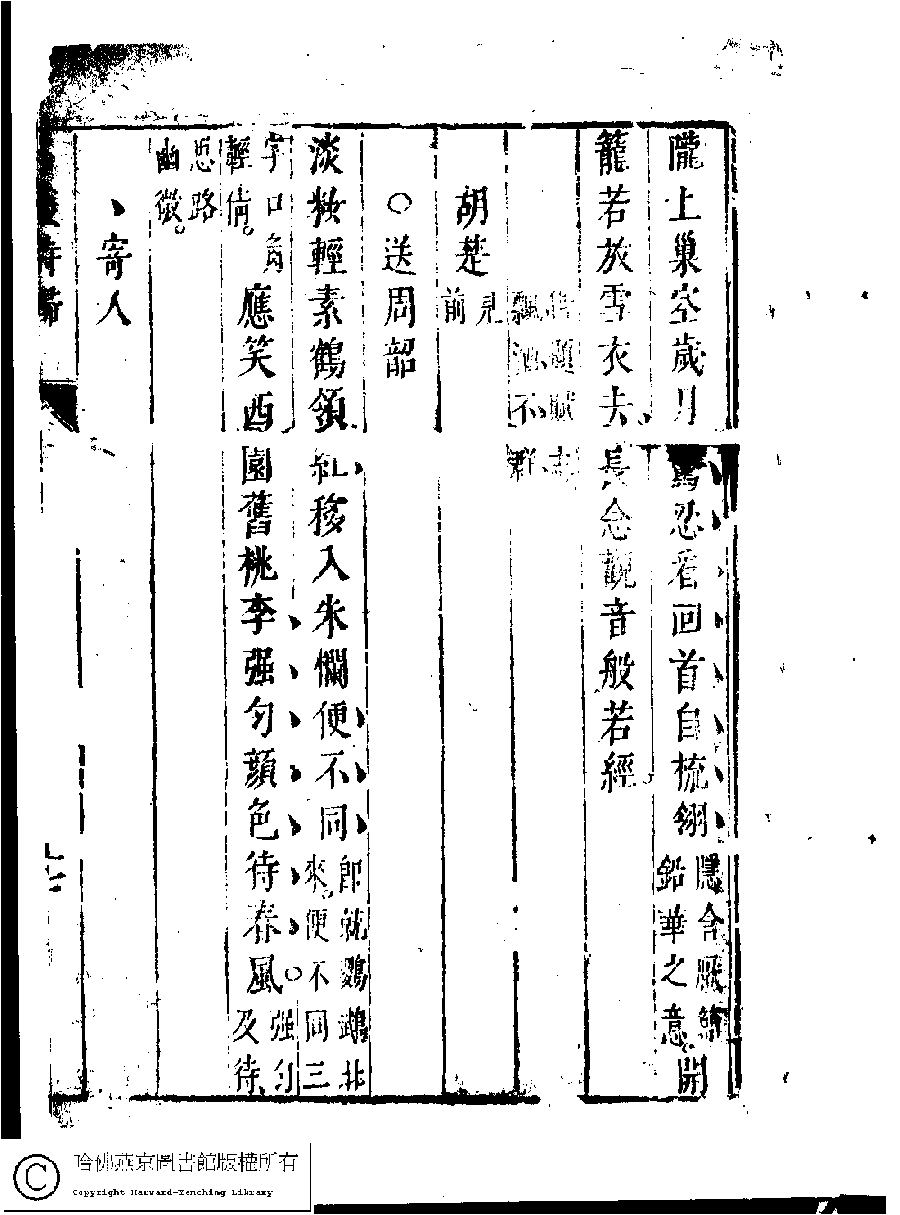 隴上巢空歲月驚忍看囘首自梳翎隱含厭鉛華之意。開
籠若放雪衣去長念觀音般若經
題賦志飄洒不群
胡楚見前
○送周韶
淡粧輕素鶴領紅移入朱欄便不同卽就鸚鵡北來。便不同三
字口角輕倩。應笑西園舊桃李强勻顏色待春風强勻及待
思路幽微。
寄人
哈佛燕京圖書館版權所有
Copyright Harvard-Yenching Library